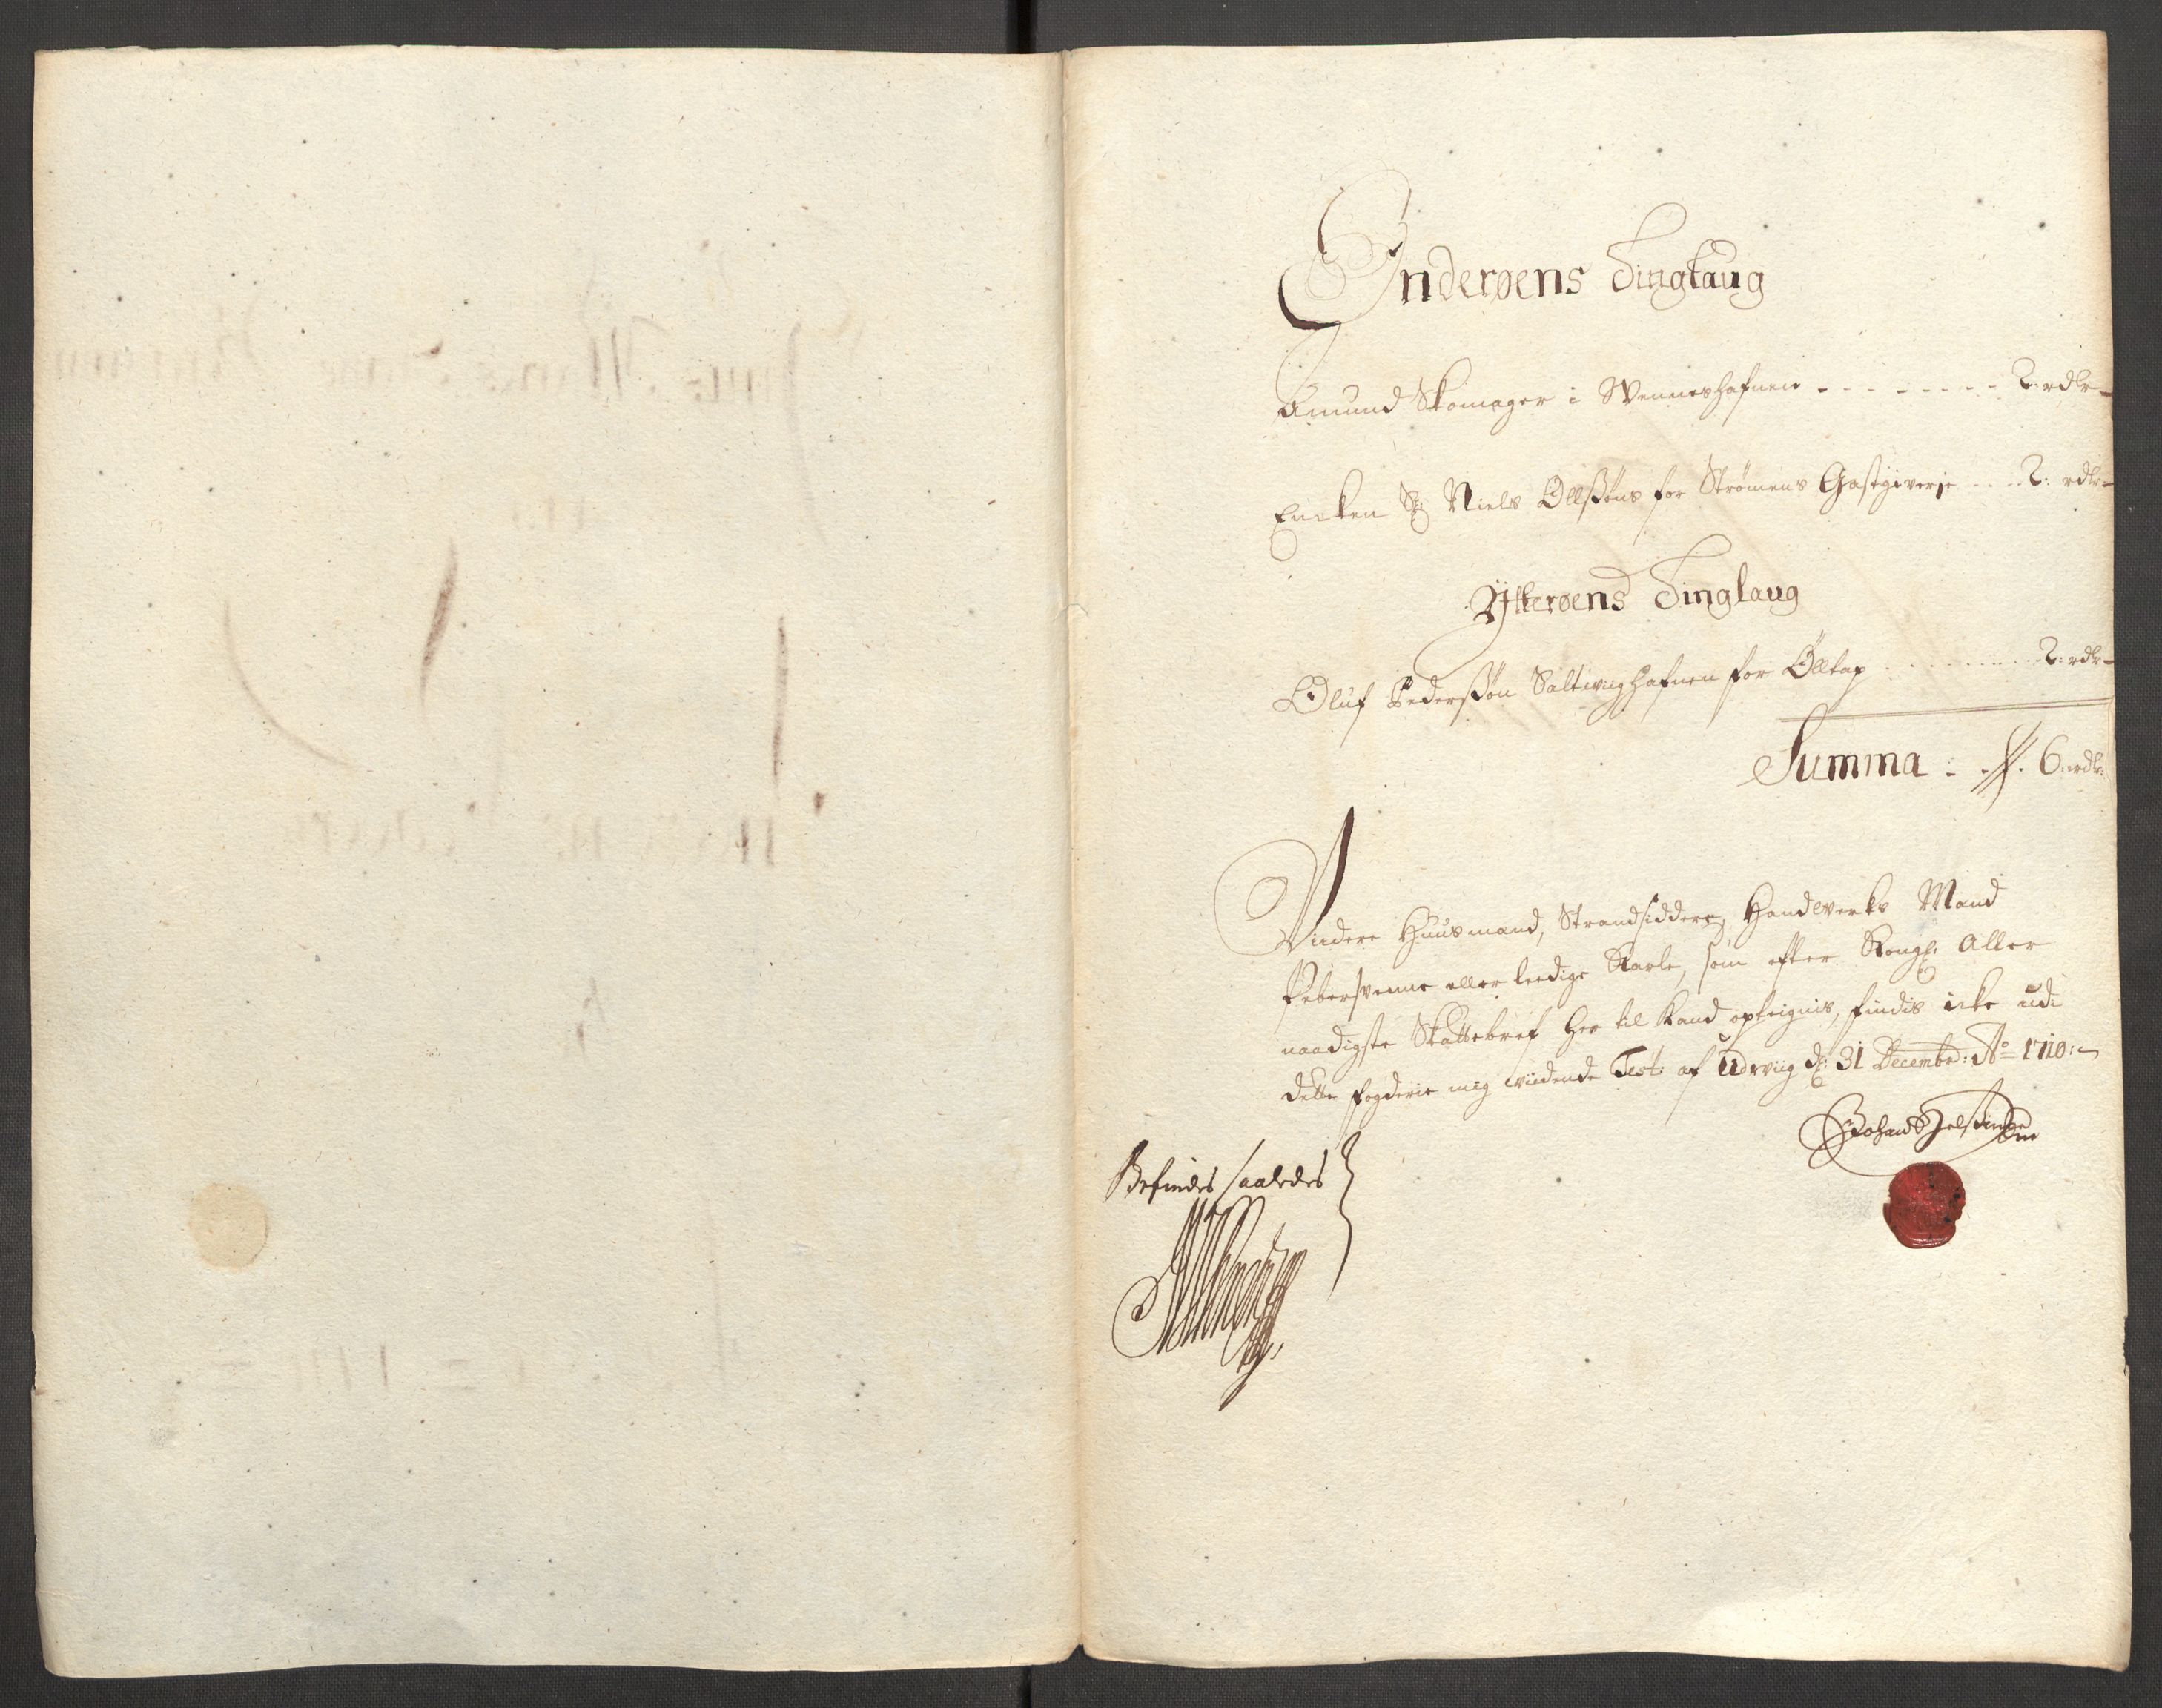 Inderøens Tinglaug
Amund Skomager i Wenneshafnen - - - - - - - - 2: rdlr -
Encken Sl: Niels Ollsøns for Strømens Gastgiverje - - - - 2: rdlr -
Ytterøens Tinglaug
Oluf Pedersøn Saltwiighafnen for Ølltap - - - - - - - 2: rdlr -
Summa - - 6: rdlr:
Viidere Huusmænd, Strandsiddere, Handwerks Mænd
Pebersvenne eller leedige Karle, som efter Kongl: Aller
naadigste Skattebref her til kand opteignis, findis icke udi
dette fogderie mig widende Test: af Udwiig d: 31 Decembr: Ao 1710:
Befindes saaledes